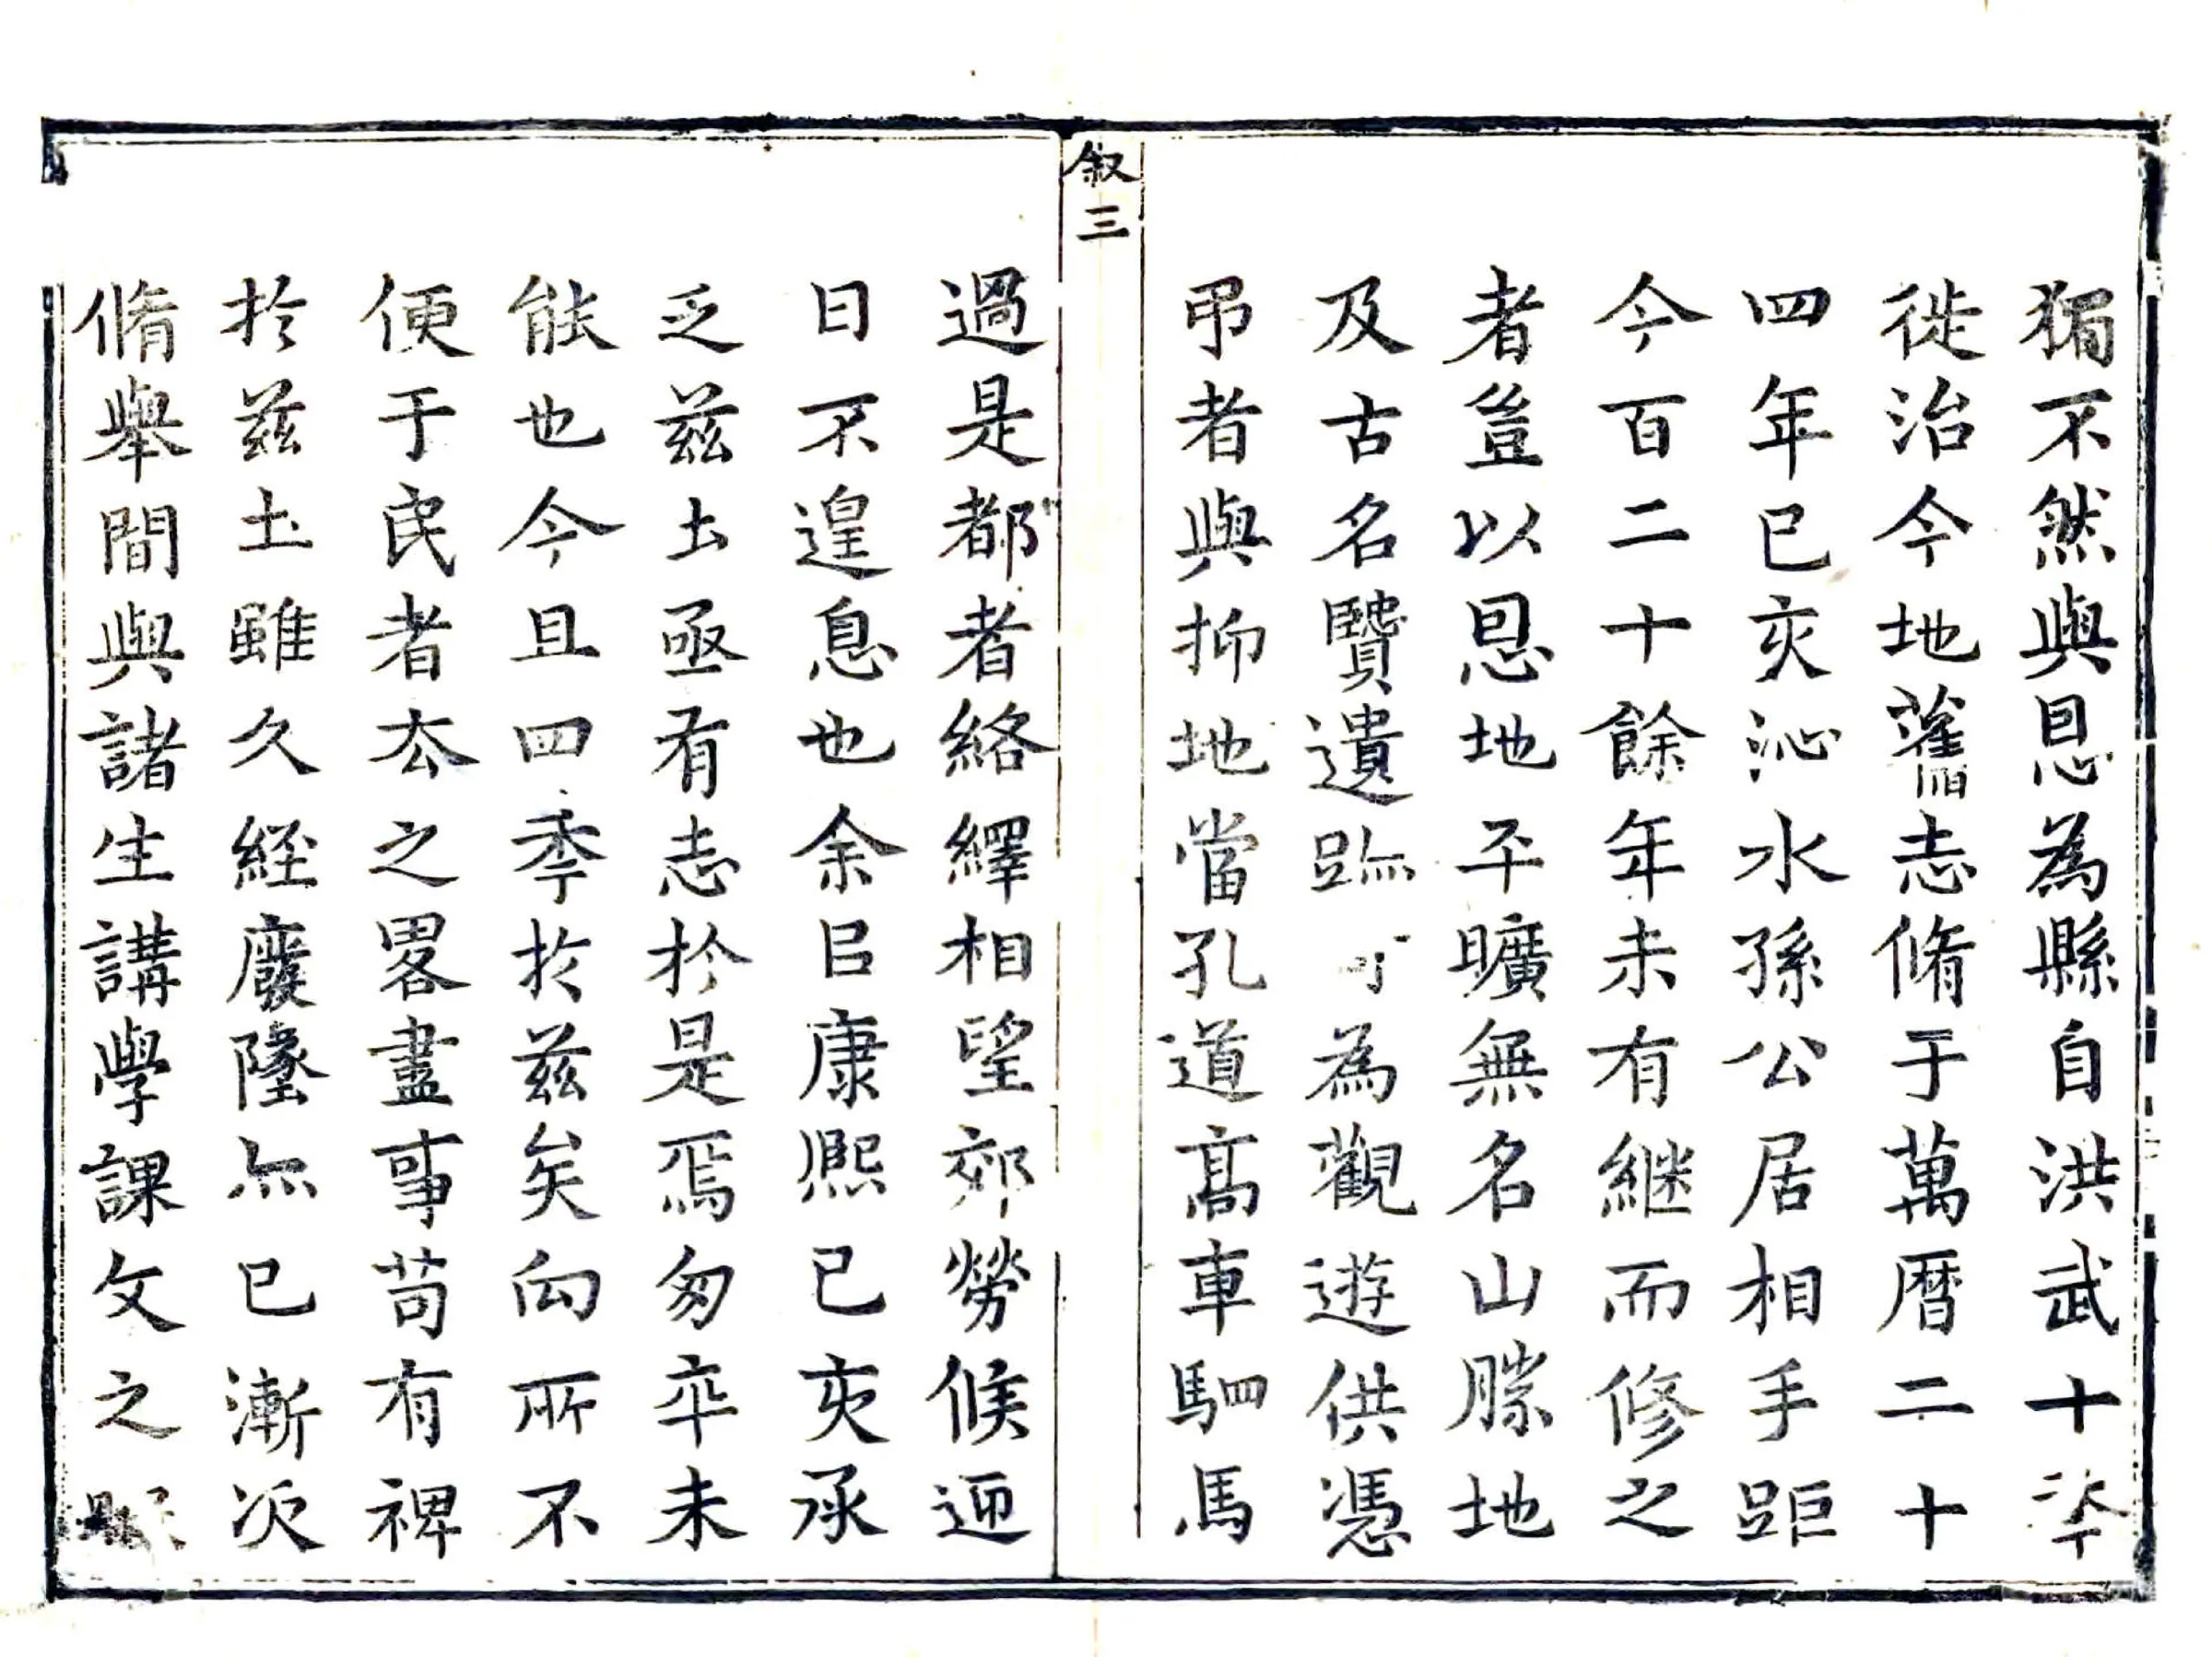 獨不然與恩為縣自洪武十秊
徙治今地舊志脩于萬曆二十
四年已亥沁水孫公居相手距
今百二十餘年未有継而修之
者豈以恩地平曠無名山勝地
及古名贒遺跡可為觀遊供憑
弔者與抑地當孔道髙車駟馬
叙三
過是都者絡繹相望郊勞候迎
日不遑息也余㠯康熈已亥承
乏兹土亟有志扵是焉匆卒未
能也今且四秊扵兹矣向所不
便于民者厺之畧盡事苟有裨
扵兹土雖久経廢墬亦已漸次
脩舉間與諸生講學課文之